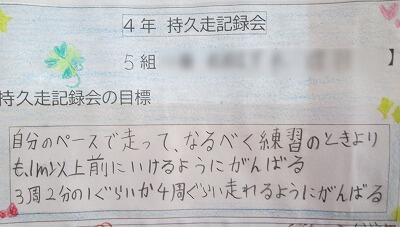 4年 持久走記録会
5組
】
持久走記録会の目標
自分のペースで走って、なるべく練習のときより
も、1m以上前にいけるようにがんばる
3周2分の1ぐらいか4周ぐらい走れるようにがんばる